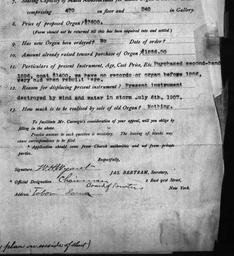 comprising 475 on floor and 240 in Gallery.
8. Price of proposed Organ? $3400.
(Form should not be returned till this has been inquired into and settled)
9. Has new Organ been ordered? No Date of order?
10. Amount already raised toward purchase of Organ?
11. Particulars of present Instrument, Age, Cost Price, Etc. Purchased second-hand
1896, cost $1400, we have no records or organ before 1896,
very old when rebuilt 1896.
12. Reason for displacing present instrument? Present instrument
destroyed by wind and water in storm July 6th, 1907.
13. How much is to be realized by sale of old Organ? Nothing.
To facilitate Mr. Carnegie's consideration of your appeal, will you oblige by
filling in the above.
Precise answer to each question is necessary. The leaving of blanks may
cause correspondence to be filed.
Application should come from Church authorities and not from private
parties.
Respectfully,
JAS. BERTRAM, Secretary,
2 East 91st Street,
New York.
Signature
Official Designation Chairman
Board of Trustees
Address